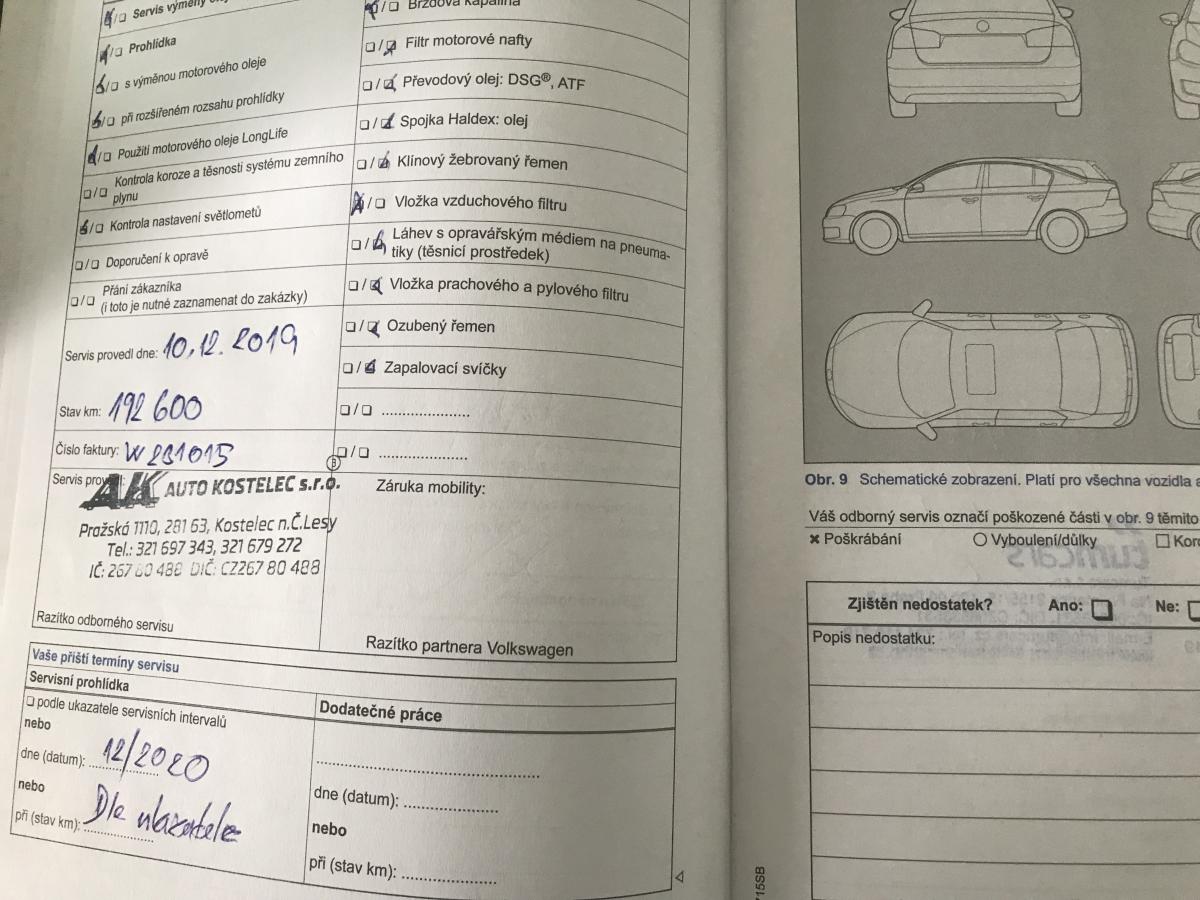 ☒/☐ Servis výměny
☒/☐ Prohlídka
☒/☐ s výměnou motorového oleje
☒/☐ při rozšířeném rozsahu prohlídky
☒/☐ Použití motorového oleje LongLife
☐/☐ Kontrola koroze a těsnosti systému zemního
plynu
☒/☐ Kontrola nastavení světlometů
☐/☐ Doporučení k opravě
☐/☐ Přání zákazníka
(i toto je nutné zaznamenat do zakázky)
Servis provedl dne: 10.12.2019
Stav km: 192 600
Číslo faktury: W231015
Servis provedl:
AK AUTO KOSTELEC s.r.o.
Pražská 1110, 281 63, Kostelec n.Č.Lesy
Tel.: 321 697 343, 321 679 272
IČ: 267 80 488 DIČ: CZ267 80 488
Razítko odborného servisu
☒/☐ Brzdová kapalina
☐/☒ Filtr motorové nafty
☐/☒ Převodový olej: DSG®, ATF
☐/☒ Spojka Haldex: olej
☐/☒ Klínový žebrovaný řemen
☒/☐ Vložka vzduchového filtru
☐/☒ Láhev s opravářským médiem na pneuma-
tiky (těsnicí prostředek)
☐/☒ Vložka prachového a pylového filtru
☐/☒ Ozubený řemen
☐/☒ Zapalovací svíčky
☐/☐ ......................
☐/☐ ......................
B
Záruka mobility:
Razítko partnera Volkswagen
Vaše příští termíny servisu
Servisní prohlídka
☐ podle ukazatele servisních intervalů
nebo
dne (datum): 12/2020
nebo
při (stav km): Dle ukazatele
Dodatečné práce
dne (datum): ......................
nebo
při (stav km): ......................
Obr. 9 Schematické zobrazení. Platí pro všechna vozidla
Váš odborný servis označí poškozené části v obr. 9 těmito
✖ Poškrábání ○ Vyboulení/důlky ☐
Zjištěn nedostatek? Ano: ☐ Ne: ☐
Popis nedostatku:
715SB